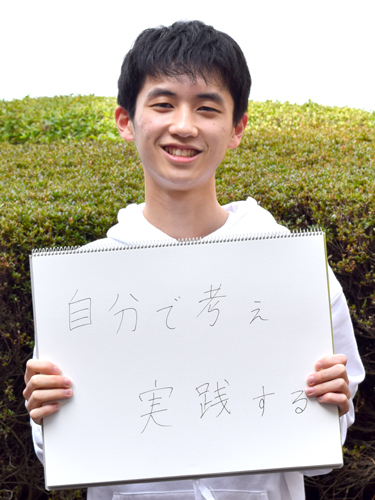 自分で考え
実践する